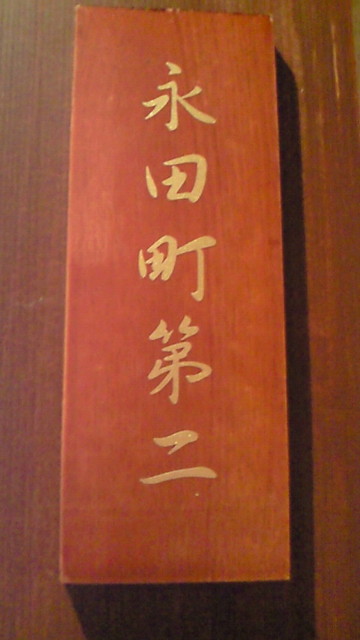 永田町第二